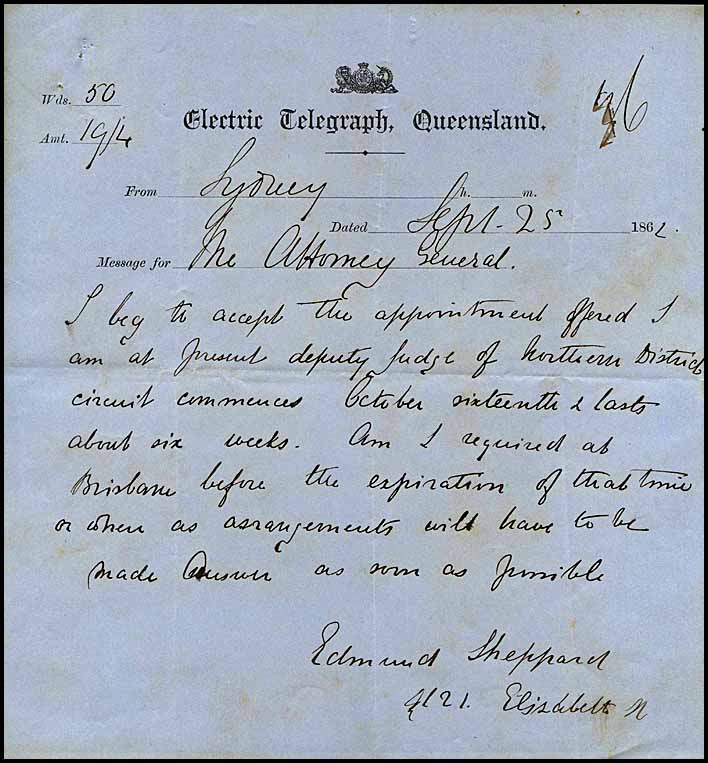 Wds. 50
Amt. 19/4
Electric Telegraph, Queensland.
From Sydney h. m.
Dated Sept. 25 1862.
Message for The Attorney General.
I beg to accept the appointment offered I
am at present deputy Judge of Northern District
circuit commences October sixteenth & lasts
about six weeks. Am I required at
Brisbane before the expiration of that time
or when as arrangements will have to be
made Answer as soon as possible
Edmund Sheppard
121. Elizabeth